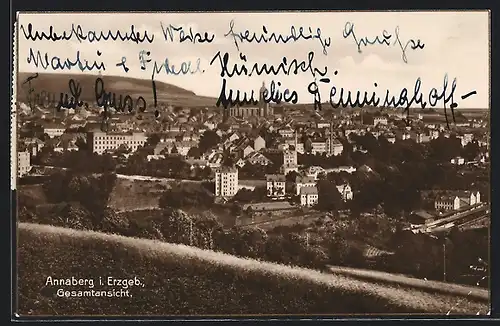 Unbekannter Weise freundliche Grüsse
Martin & Friedel Hümisch.
Freundl. Gruss! Annelies Femminghoff –
Annaberg i. Erzgeb.,
Gesamtansicht.